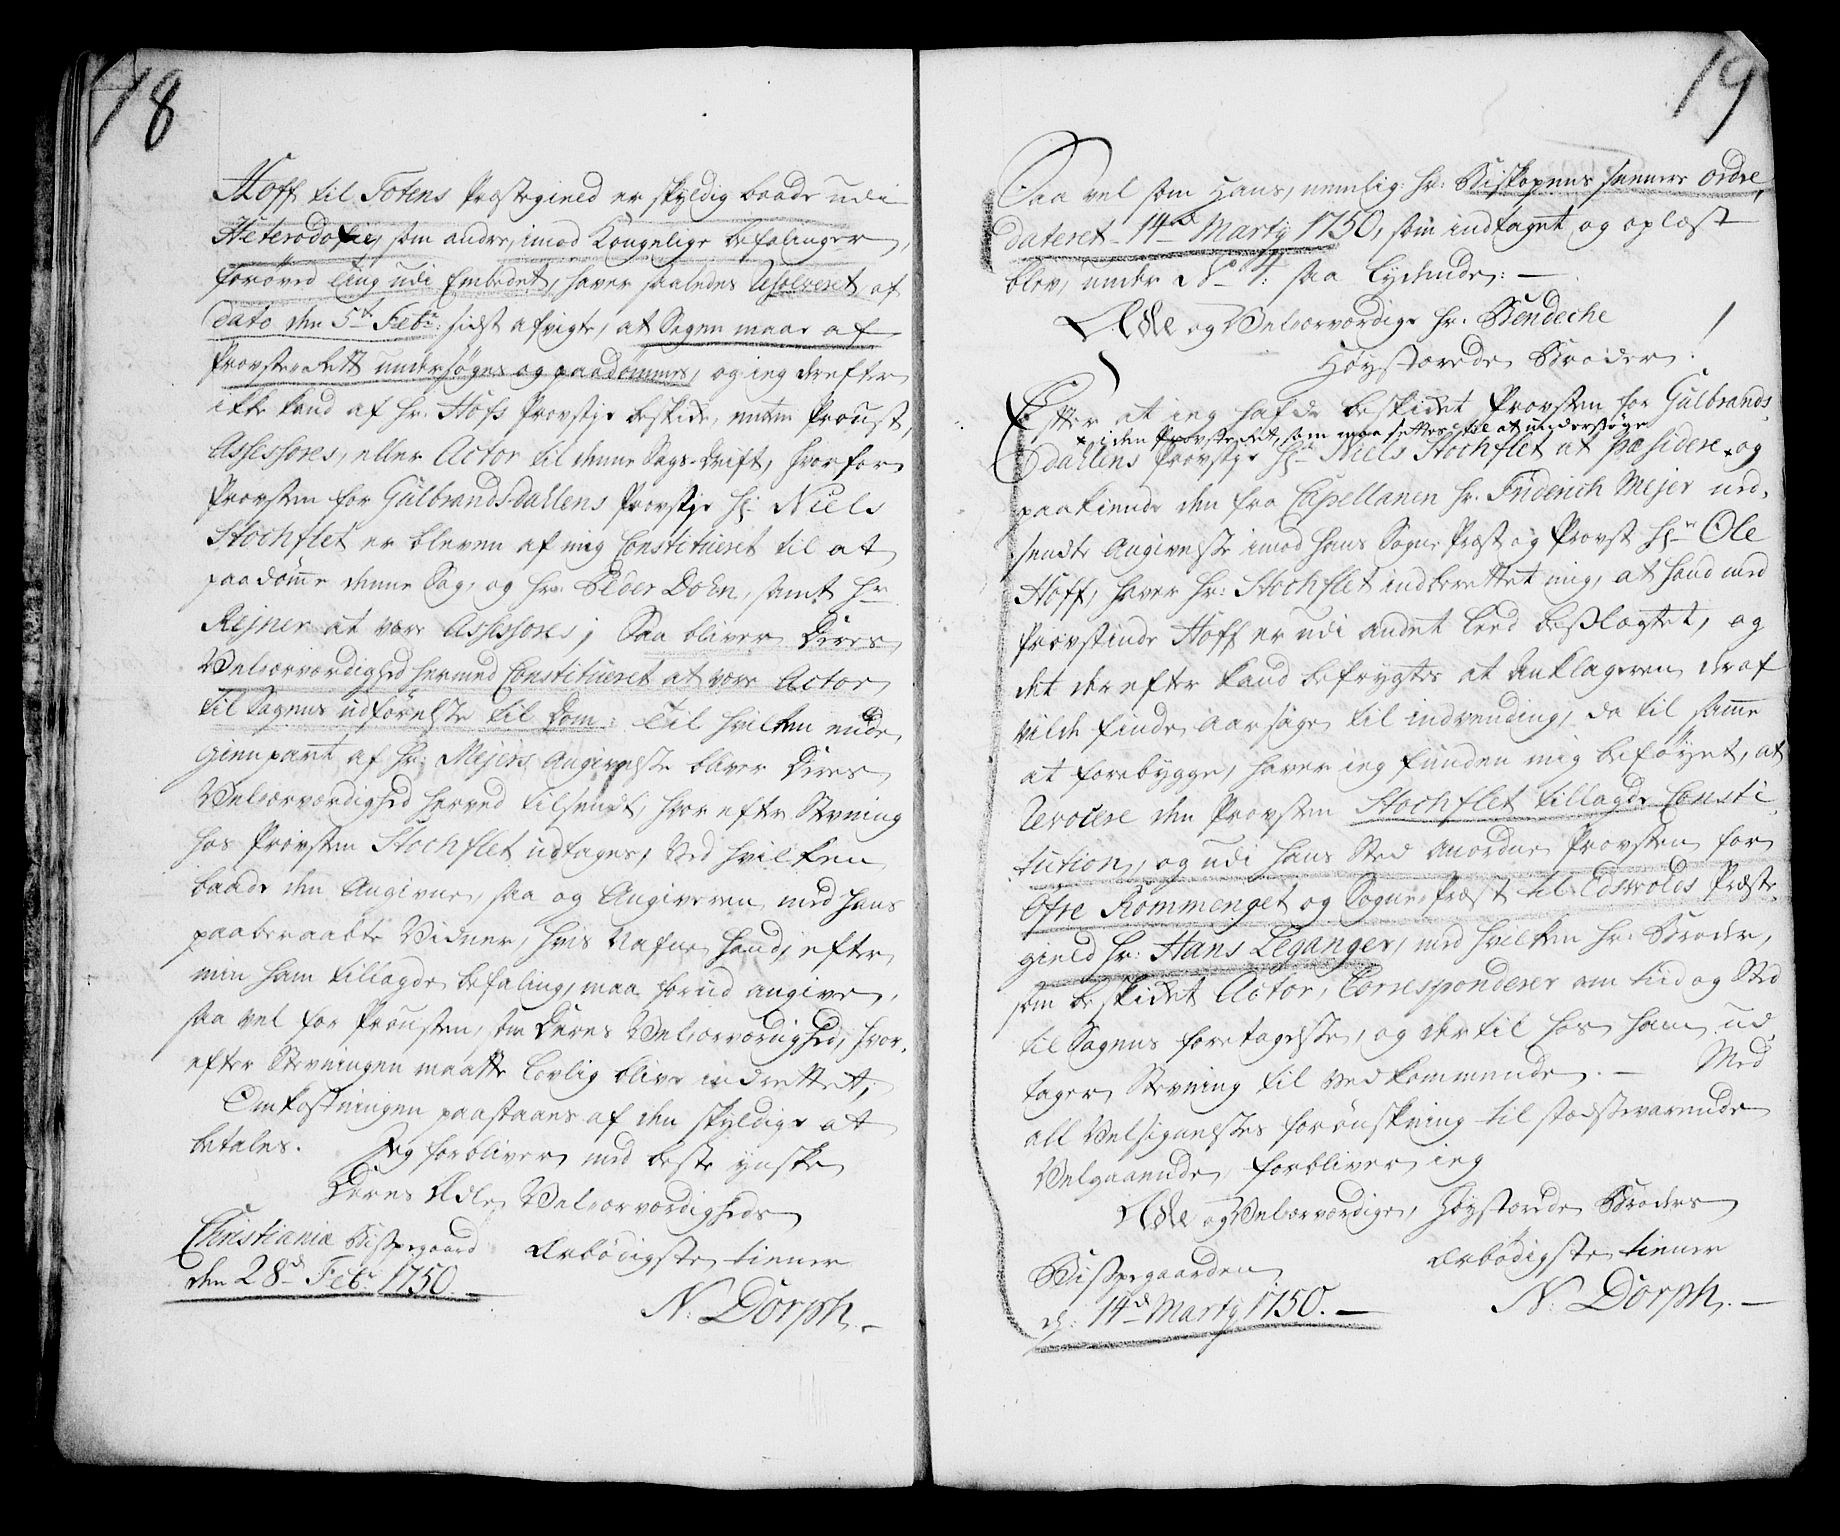 18
Hoff til Totens Præstegield er skyldig baade udi
Heterodoxie, som andre, imod Kongelige befalinger,
forøved Ting udi Embedet, haver saaledes Resolveret af
Dato den 5te Febr: sidst afvigte, at Sagen maae af
Provste-Rett undersøges og paadømmes, og ieg derefter
ikke kand af Hr. Hofs Provstie beskikke, enten Proust,
Assessores, eller Actor til denne Sags Drift, hvorfor
Provsten for Gulbrandsdallens Provstie Hr. Niels
Stochflet er bleven af mig Constitueret til at
paadømme denne Sag, og Hr. Peder Doen, samt Hr
Rejner at være Assessores; Saa bliver Deres
Velærværdighed hermed Constitueret at være Actor
til Sagens udførelse til Dom: Til hvilken ende
Gienpart af Hr. Mejers Angivelse bliver Deres
Velærværdighed herved tilsendt, hvorefter Stevning
hos Provsten Stochflet udtages, Ved hvilken
baade den Angivne, saa og Angiveren med hans
paaberaabte Vidner, hvis Nafne hand, efter
min ham tillagde befaling, maa forud angive,
saa vel for Prousten, som Deres Velærværdighed, hvor-
efter Stevningen maatte lovlig blive indrettet;
Omkostningen paastaaes af den skyldige at
betales. Jeg forbliver med beste ynske
Deres Ædle Velærværdigheds
Christiania Bispegaard ærbødigste tiener
den 28d Febr 1750. N. Dorph.
19
Saa vel som Hans, nemlig: Hr: Biskopens senere Ordre,
dateret 14de Marty 1750, som indtaget og oplæst
blev, under No 4: saa lydende:
Ædle og Velærværdige Hr. Bendeche
Høystærede Broder!
Efter at ieg hafde beskikket Provsten for Gulbrands-
x i den Provsteret, som maa settes til at undersøge
dallens Provstie Hr Niels Stochflet at præsidere x og
paakiende den fra Capellanen Hr. Friderich Mejer ind-
sendte Angivelse imod hans Sogne Præst og Provst Hr Ole
Hoff, haver Hr: Stochflet indberettet mig, at hand med
Provstinde Hoff er udi andet Leed besvogret, og
det derefter kand befrygtes at Anklageren deraf
vilde finde aarsage til indvending, da til samme
at forebygge, haver ieg funden mig beføyet, at
Revocere den Provsten Stochflet tillagde Consti-
tution, og udi hans Sted anordne Provsten for
Øfre Rommeriget og Sogne-Præst til Edswolds Præste-
gield Hr. Hans Leganger, med hvilken Hr. Broder,
som beskikket Actor, Corresponderer om tiid og Sted
til Sagens foretagelse, og dertil hos ham ud-
tager Stevning til Vedkommende. Med
all Velsignelses forønskning til stedsevarende
Velgaaende, forbliver ieg
Ædle og Velærværdige, Høystærede Broders
Bispegaarden ærbødigste tiener
d: 14de Marty 1750. N. Dorph.